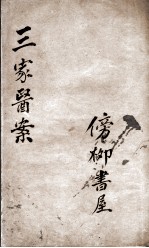 三家醫案
傍柳書屋